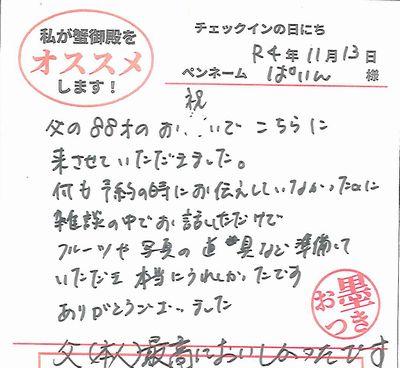 私が蟹御殿を
オススメ
します!
チェックインの日にち
R4年11月13日
ペンネーム ぱりん 様
父の88才のお祝いで こちらに
来させていただきました。
何も予約の時にお伝えしていなかったのに
雑談の中でお話しただけで
フルーツや写真の道具など準備して
いただき 本当にうれしかったです
ありがとうございました
お墨つき
父(本人)最高においしかったです